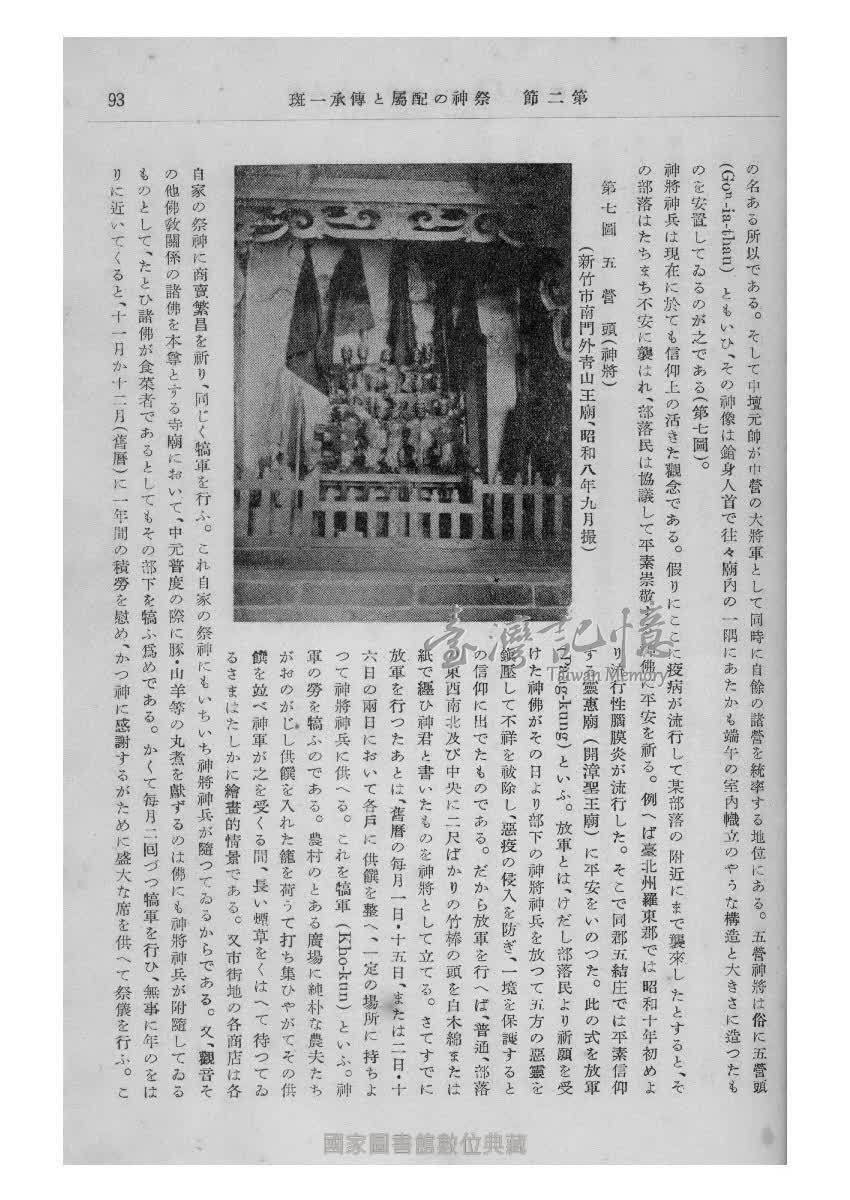 93
第二節　祭神の配屬と傳承一斑
の名ある所以である。そして中壇元帥が中營の大將軍として同時に自餘の諸營を統率する地位にある。五營神將は俗に五營頭
(Goⁿ-iâ-thâu) ともいひ、その神像は鎗身人首で往々廟內の一隅にあたかも端午の室內幟立のやうな構造と大きさに造つたも
のを安置してゐるのが之である(第七圖)。
神將神兵は現在に於ても信仰上の活きた觀念である。假りにここに疫病が流行して某部落の附近にまで襲來したとすると、そ
の部落はたちまち不安に襲はれ、部落民は協議して平素崇敬 神佛に平安を祈る。例へば臺北州羅東郡では昭和十年初めよ
第七圖　五營頭(神將)
(新竹市南門外靑山王廟、昭和八年九月撮)
り流行性腦膜炎が流行した。そこで同郡五結庄では平素信仰
する靈惠廟(開漳聖王廟)に平安をいのつた。此の式を放軍
(Pàng-kung)といふ。放軍とは、けだし部落民より祈願を受
けた神佛がその日より部下の神將神兵を放つて五方の惡靈を
鎭壓して不祥を祓除し、惡疫の侵入を防ぎ、一境を保護すると
の信仰に出でたものである。だから放軍を行へば、普通、部落
東西南北及び中央に二尺ばかりの竹棒の頭を白木綿または
紙で纒ひ神君と書いたものを神將として立てる。さてすでに
放軍を行つたあとは、舊曆の每月一日・十五日、または二日・十
六日の兩日において各戶に供饌を整へ、一定の場所に持ちよ
つて神將神兵に供へる。これを犒軍 (Khò-kun) といふ。神
軍の勞を犒ふのである。農村のとある廣場に純朴な農夫たち
がおのがじし供饌を入れた籠を荷うて打ち集ひやがてその供
饌を竝べ神軍が之を受くる間、長い煙草をくはへて待つてゐ
るさまはたしかに繪畫的情景である。又市街地の各商店は各
自家の祭神に商賣繁昌を祈り、同じく犒軍を行ふ。これ自家の祭神にもいちいち神將神兵が隨つてゐるからである。又、觀音そ
の他佛敎關係の諸佛を本尊とする寺廟において、中元普度の際に豚・山羊等の丸煮を獻ずるのは佛にも神將神兵が附隨してゐる
ものとして、たとひ諸佛が食菜者であるとしてもその部下を犒ふ爲めである。かくて每月二回づつ犒軍を行ひ、無事に年のをは
りに近いてくると、十一月か十二月(舊曆)に一年間の積勞を慰め、かつ神に感謝するがために盛大な席を供へて祭儀を行ふ。こ
臺灣記憶
Taiwan Memory
國家圖書館數位典藏